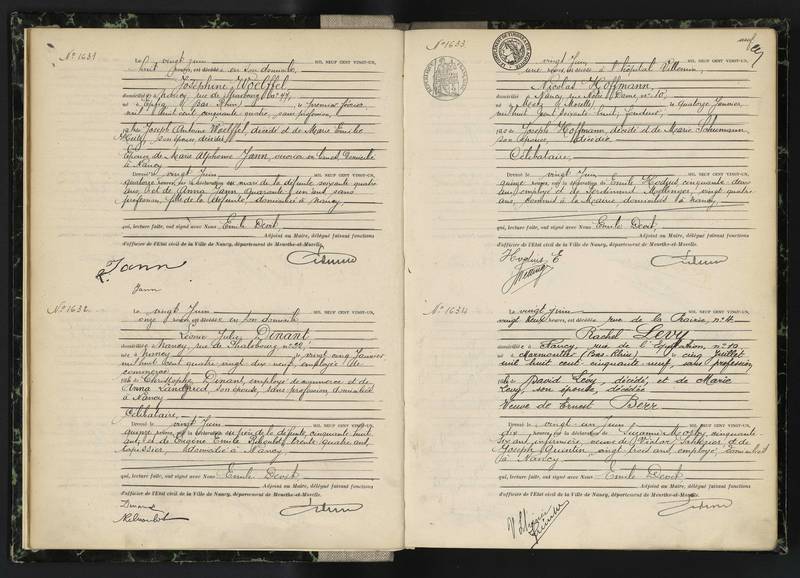 N° 1631
Le vingt juin MIL NEUF CENT VINGT-UN,
huit heures, est décédée en son domicile,
Joséphine Woelffel
domiciliée à Nancy, rue de Strasbourg, n° 77,
née à (Bas Rhin), le premier février
mil huit cent cinquante quatre, sans profession,
fille de Joseph Antoine Woelffel, décédé et de Marie Emilie
son épouse, décédée
Épouse de Marie Alphonse Jann, domicilié
à Nancy
Dressé le vingt juin MIL NEUF CENT VINGT-UN,
quatorze heures, sur la déclaration du mari de la défunte, soixante quatre
ans, et de Anna Jann, quarante un ans, sans
profession, fille de la défunte, domiciliée à Nancy
qui, lecture faite, ont signé avec Nous Emile Devit,
Adjoint au Maire, délégué faisant fonctions
d'officier de l'État civil de la Ville de Nancy, département de Meurthe-et-Moselle.
Jann
Jann
N° 1632
Le vingt juin MIL NEUF CENT VINGT-UN,
onze heures, est décédée en son domicile
Léonie Julie Dinant
domiciliée à Nancy, rue de Phalsbourg n° 22,
née à Nancy le vingt cinq Janvier
mil huit cent quatre vingt dix neuf, employée de
commerce
fille de Christophe Dinant, employé de commerce et de
Anna, son épouse, sans profession, domiciliés
à Nancy
Célibataire,
Dressé le vingt juin MIL NEUF CENT VINGT-UN,
quinze heures, sur la déclaration du père de la défunte, cinquante huit
ans, et de Eugène Emile, trente quatre ans,
tapissier, domicilié à Nancy
qui, lecture faite, ont signé avec Nous Emile Devit
Adjoint au Maire, délégué faisant fonctions
d'officier de l'État civil de la Ville de Nancy, département de Meurthe-et-Moselle.
Dinant
N° 1633
Le vingt juin MIL NEUF CENT VINGT-UN,
une heure, est décédé à l'hôpital Villemin,
Nicolas Hoffmann,
domicilié à Nancy, rue Notre Dame, n° 10,
né à Metz (Moselle) le quatorze Janvier
mil huit cent soixante huit, fondeur,
fils de Joseph Hoffmann, décédé et de Marie Schumann,
son épouse, décédée
Célibataire,
Dressé le vingt juin MIL NEUF CENT VINGT-UN,
quinze heures, sur la déclaration de Emile Hodgus, cinquante deux
ans, employé et de Ferdinand, vingt quatre
ans, à la Mairie, domiciliés à Nancy,
qui, lecture faite, ont signé avec Nous Emile Devit,
Adjoint au Maire, délégué faisant fonctions
d'officier de l'État civil de la Ville de Nancy, département de Meurthe-et-Moselle.
Hodgus, E
N° 1634
Le vingt juin MIL NEUF CENT VINGT-UN,
vingt deux heures, est décédée rue de la Prairie, n° 4
Rachel Levy
domiciliée à Nancy, rue de l'Equitation, n° 10,
née à Marmoutier (Bas Rhin) le cinq Juillet
mil huit cent cinquante neuf, sans profession
fille de David Levy, décédé, et de Marie
Levy, son épouse, décédée
Veuve de Ernest Berr
Dressé le vingt un Juin MIL NEUF CENT VINGT-UN,
dix heures, sur la déclaration de Suzanne, cinquante
six ans, infirmière, veuve de Victor, et de
Joseph Quintin, vingt trois ans, employé, domiciliés
à Nancy
qui, lecture faite, ont signé avec Nous Emile Devit
Adjoint au Maire, délégué faisant fonctions
d'officier de l'État civil de la Ville de Nancy, département de Meurthe-et-Moselle.